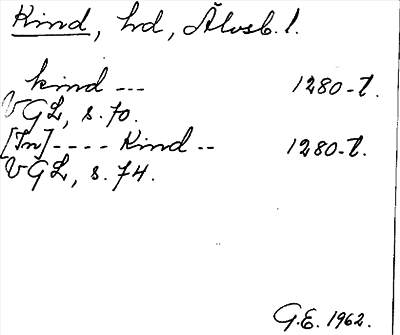 Kind, hd, Älvsb. l.
kind --- 1280-t.
VGL, s. 70.
[In]---- Kind -- 1280-t.
VGL, s. 74.
G.E. 1962.